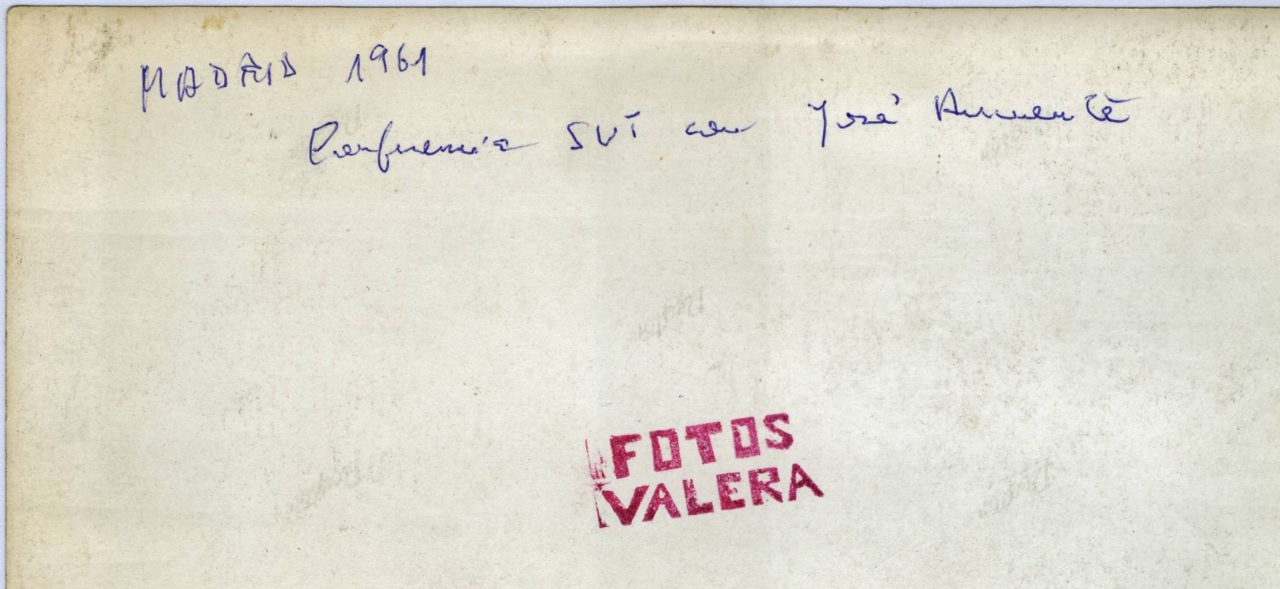 MADRID 1961
Conferencia SUT con José Aumente
FOTOS
VALERA